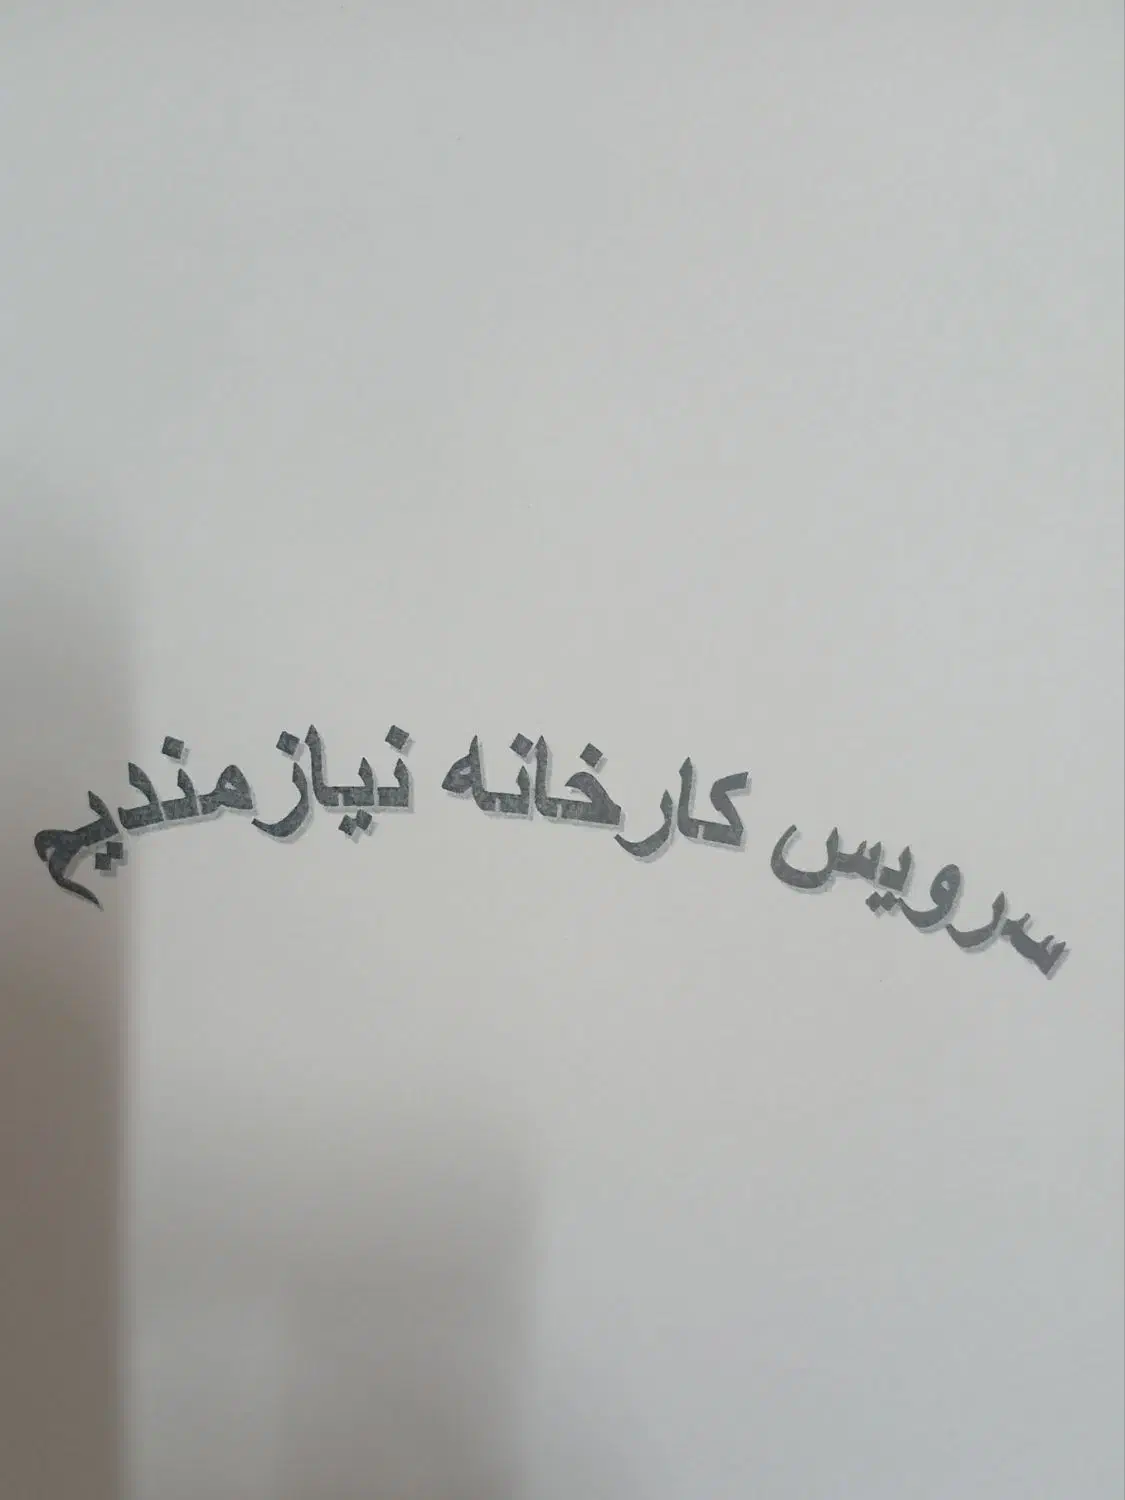 سرویس کارخانه نیازمندیم